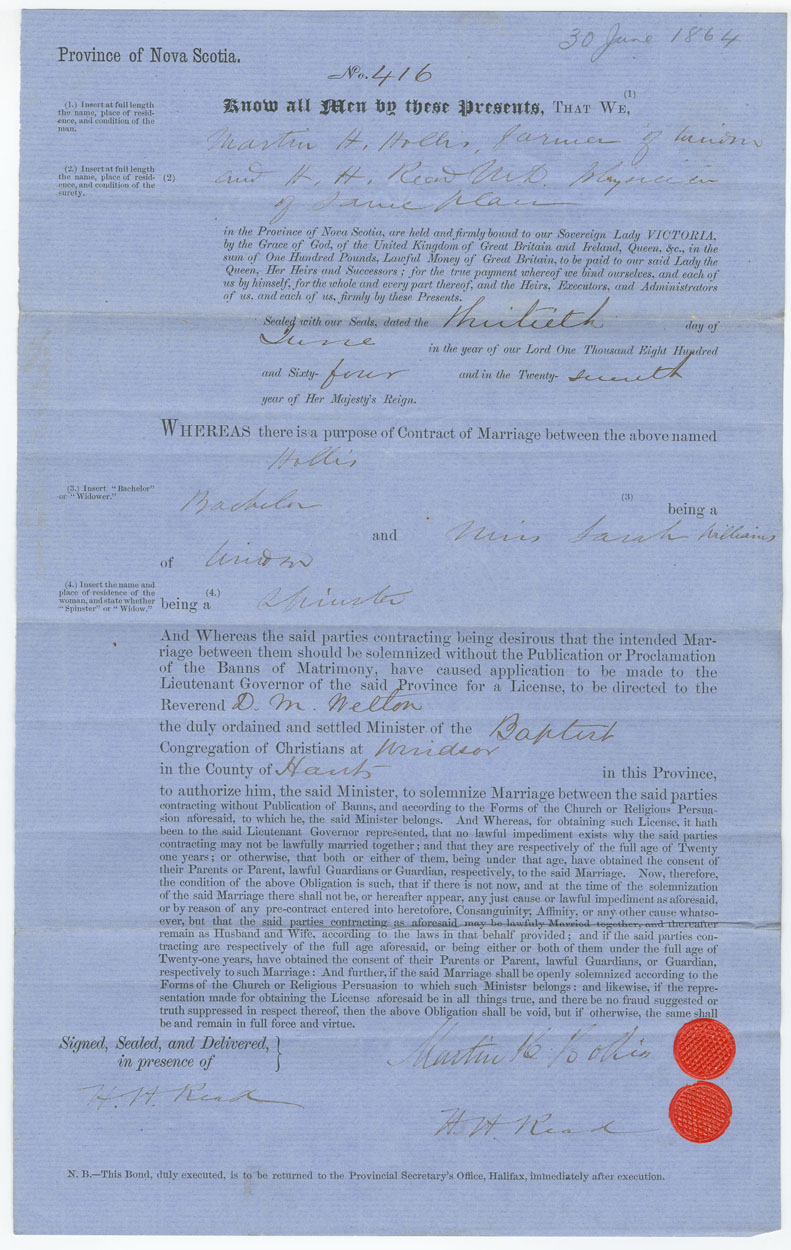 30 June 1864
Province of Nova Scotia.
No. 416
(1.) Insert at full length
the name, place of resid-
ence, and condition of the
man.
Know all Men by these Presents, THAT WE, (1)
Martin H. Hollis, Farmer of Windsor
(2.) Insert at full length
the name, place of resid-
ence, and condition of the
surety.
(2) and H. H. Read M.D. Physician
of Same place
in the Province of Nova Scotia, are held and firmly bound to our Sovereign Lady VICTORIA,
by the Grace of God, of the United Kingdom of Great Britain and Ireland, Queen, &c., in the
sum of One Hundred Pounds, Lawful Money of Great Britain, to be paid to our said Lady the
Queen, Her Heirs and Successors; for the true payment whereof we bind ourselves, and each of
us by himself, for the whole and every part thereof, and the Heirs, Executors, and Administrators
of us, and each of us, firmly by these Presents.
Sealed with our Seals, dated the Thirtieth day of
June in the year of our Lord One Thousand Eight Hundred
and Sixty- four and in the Twenty- seventh
year of Her Majesty's Reign.
WHEREAS there is a purpose of Contract of Marriage between the above named
Hollis
(3.) Insert "Bachelor"
or "Widower."
(3) being a
Bachelor and Miss Sarah Williams
of Windsor
(4.) Insert the name and
place of residence of the
woman, and state whether
"Spinster" or "Widow."
being a (4.) Spinster
And Whereas the said parties contracting being desirous that the intended Mar-
riage between them should be solemnized without the Publication or Proclamation
of the Banns of Matrimony, have caused application to be made to the
Lieutenant Governor of the said Province for a License, to be directed to the
Reverend D. M. Welton
the duly ordained and settled Minister of the Baptist
Congregation of Christians at Windsor
in the County of Hants in this Province,
to authorize him, the said Minister, to solemnize Marriage between the said parties
contracting without Publication of Banns, and according to the Forms of the Church or Religious Persua-
sion aforesaid, to which he, the said Minister belongs. And Whereas, for obtaining such License, it hath
been to the said Lieutenant Governor represented, that no lawful impediment exists why the said parties
contracting may not be lawfully married together; and that they are respectively of the full age of Twenty
one years; or otherwise, that both or either of them, being under that age, have obtained the consent of
their Parents or Parent, lawful Guardians or Guardian, respectively, to the said Marriage. Now, therefore,
the condition of the above Obligation is such, that if there is not now, and at the time of the solemnization
of the said Marriage there shall not be, or hereafter appear, any just cause or lawful impediment as aforesaid,
or by reason of any pre-contract entered into heretofore, Consanguinity, Affinity, or any other cause whatso-
ever, but that the said parties contracting as aforesaid may be lawfuly Married together, and thereafter
remain as Husband and Wife, according to the laws in that behalf provided; and if the said parties con-
tracting are respectively of the full age aforesaid, or being either or both of them under the full age of
Twenty-one years, have obtained the consent of their Parents or Parent, lawful Guardians, or Guardian,
respectively to such Marriage: And further, if the said Marriage shall be openly solemnized according to the
Forms of the Church or Religious Persuasion to which such Ministsr belongs: and likewise, if the repre-
sentation made for obtaining the License aforesaid be in all things true, and there be no fraud suggested or
truth suppressed in respect thereof, then the above Obligation shall be void, but if otherwise, the same shall
be and remain in full force and virtue.
Signed, Sealed, and Delivered,
in presence of
Martin H Hollis
H. H. Read
H H Read
N. B.—This Bond, duly executed, is to be returned to the Provincial Secretary's Office, Halifax, immediately after execution.